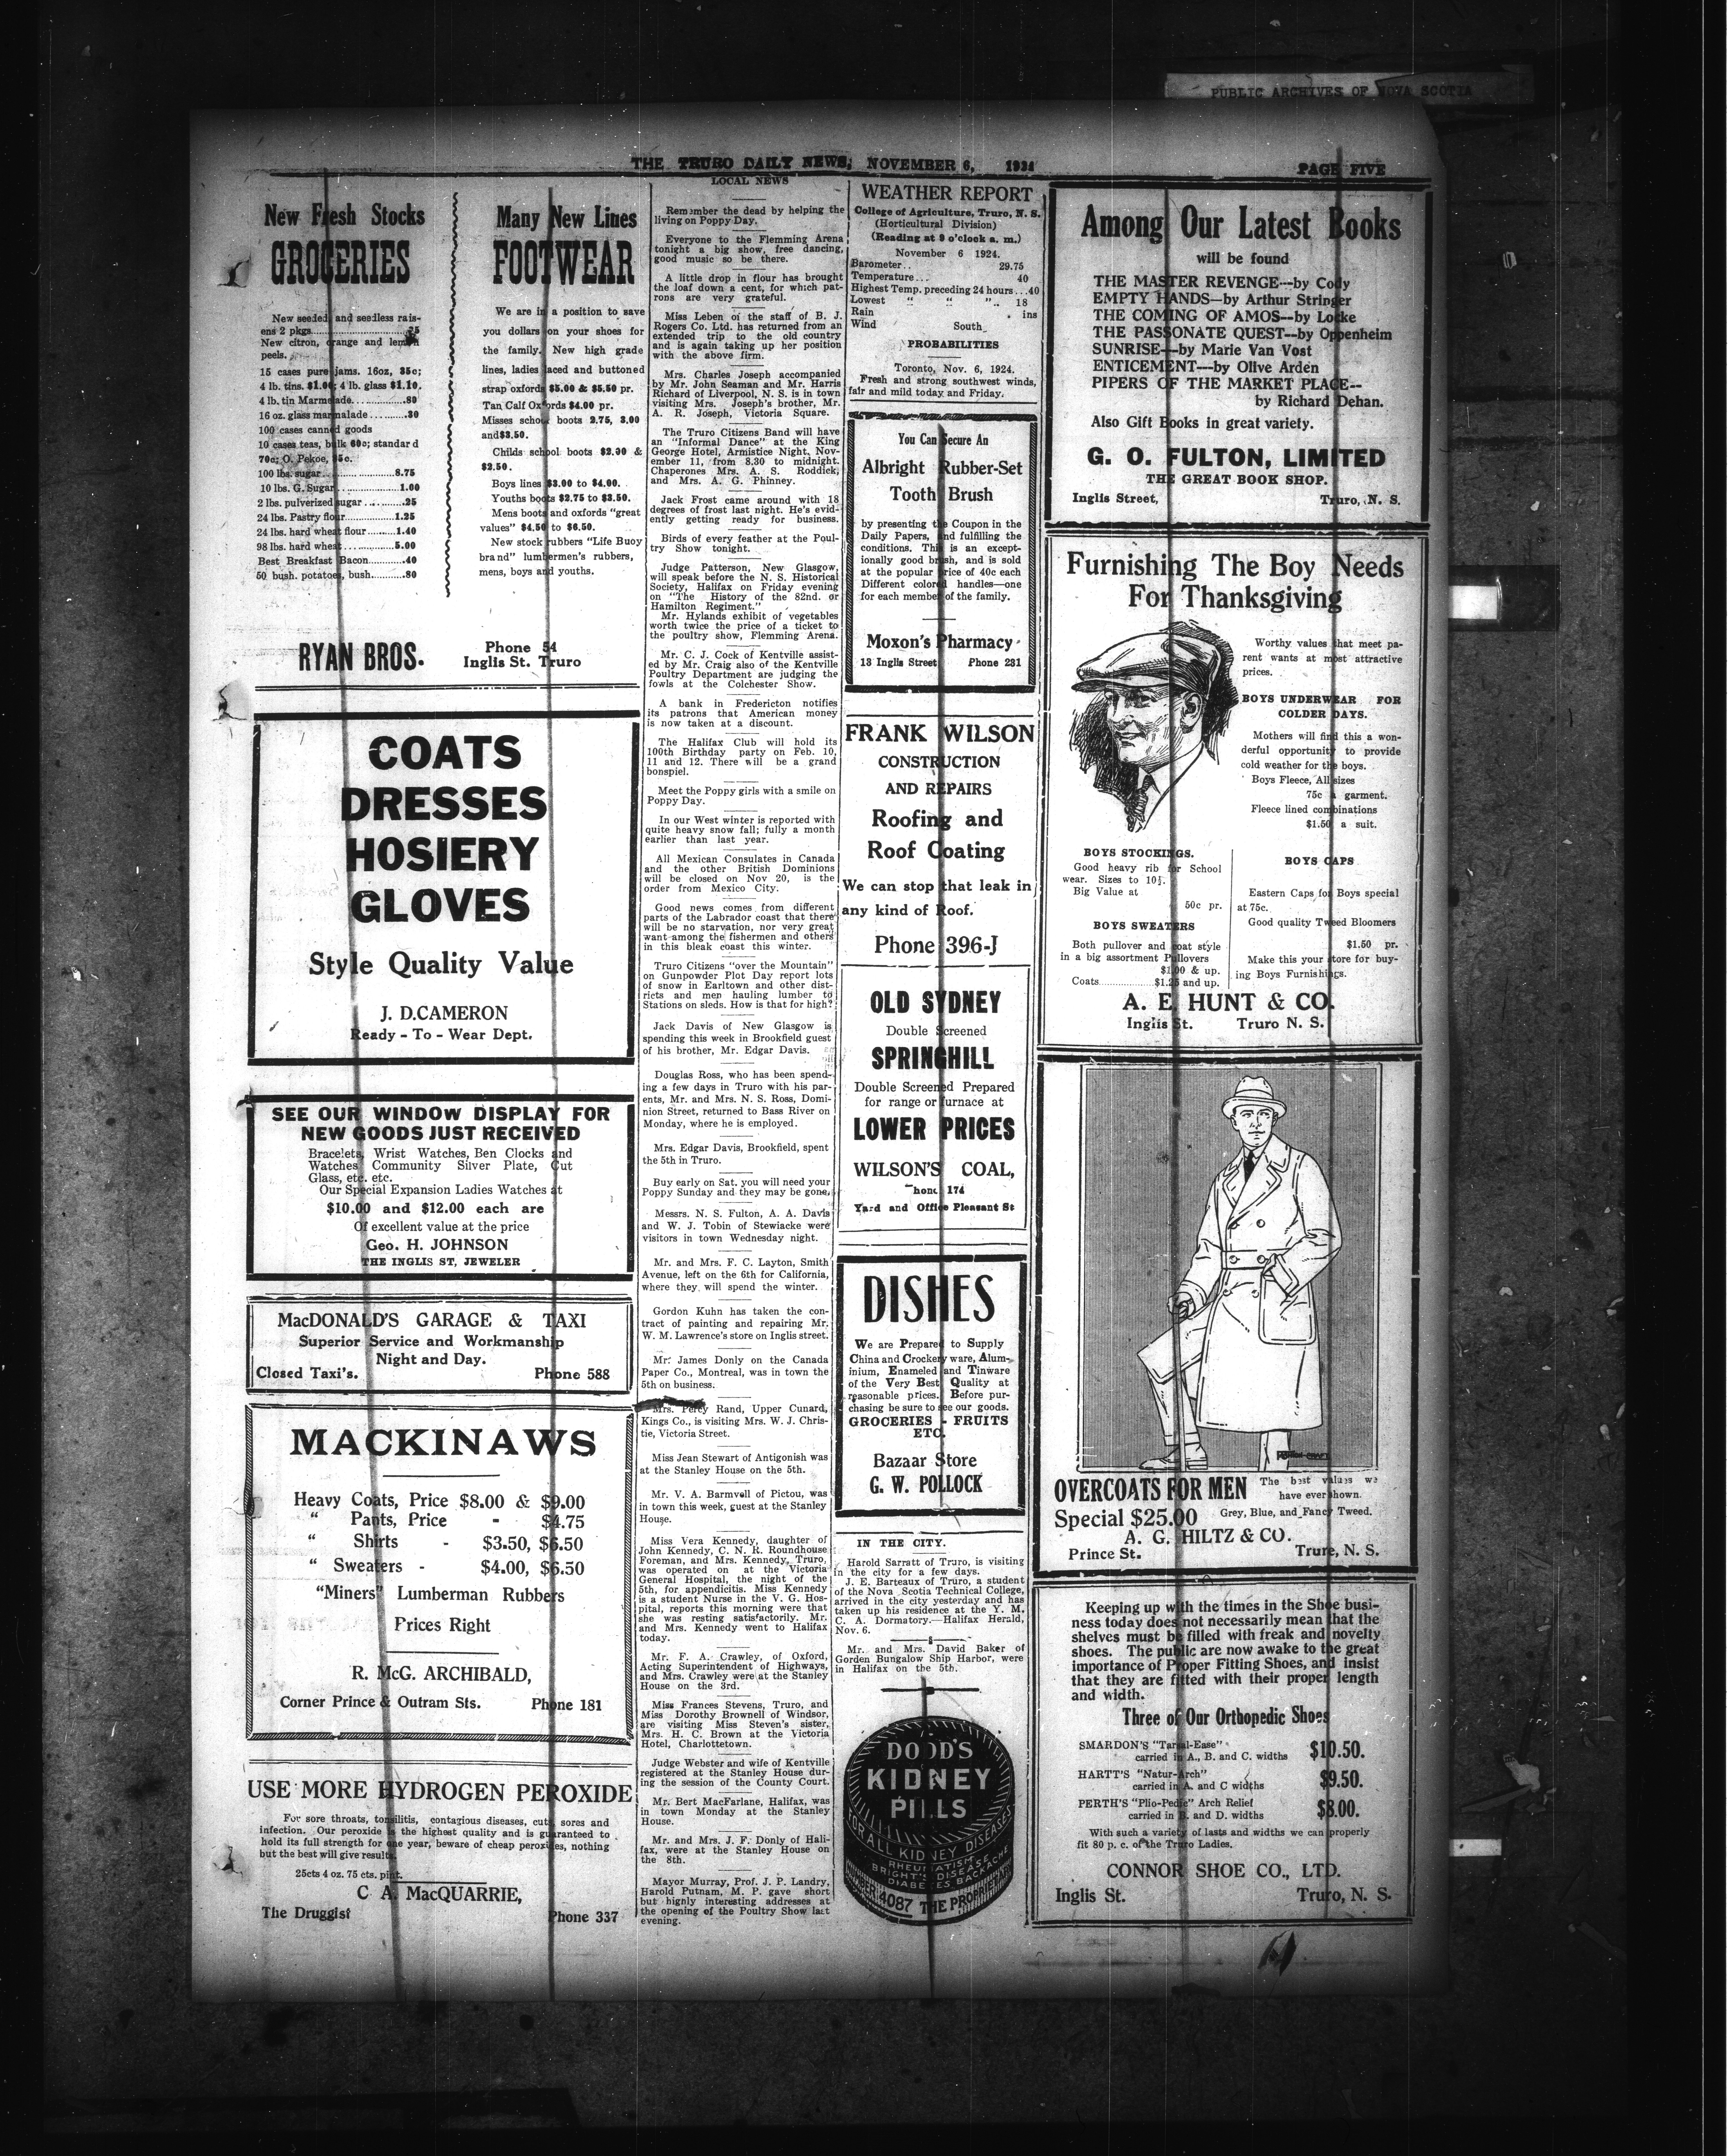 PUBLIC ARCHIVES OF NOVA SCOTIA
THE TRURO DAILY NEWS, NOVEMBER 6, 1924
PAGE FIVE
New Fresh Stocks
GROCERIES
New seeded and seedless rais-
ens 2 pkgs..........25
New citron, orange and lemon
peels.
15 cases pure jams. 16oz, 35c;
4 lb. tins. $1.00; 4 lb. glass $1.10.
4 lb. tin Marmelade............80
16 oz. glass marmalade.........30
100 cases canned goods
10 cases teas, bulk 60c; standard
70c; O. Pekoe, 85c.
100 lbs. sugar..............8.75
10 lbs. G. Sugar..............1.00
2 lbs. pulverized sugar..........25
24 lbs. Pastry flour............1.25
24 lbs. hard wheat flour.........1.40
98 lbs. hard wheat.............5.00
Best Breakfast Bacon...........40
50 bush. potatoes, bush..........80
Many New Lines
FOOTWEAR
We are in a position to save
you dollars on your shoes for
the family. New high grade
lines, ladies laced and buttoned
strap oxfords $5.00 & $5.50 pr.
Tan Calf Oxfords $4.00 pr.
Misses school boots 2.75, 3.00
and $3.50.
Childs school boots $2.00 &
$2.50.
Boys lines $3.00 to $4.00.
Youths boots $2.75 to $3.50.
Mens boots and oxfords "great
values" $4.50 to $6.50.
New stock rubbers "Life Buoy
brand" lumbermen's rubbers,
mens, boys and youths.
RYAN BROS.
Phone 54
Inglis St. Truro
COATS
DRESSES
HOSIERY
GLOVES
Style Quality Value
J. D.CAMERON
Ready - To - Wear Dept.
SEE OUR WINDOW DISPLAY FOR
NEW GOODS JUST RECEIVED
Bracelets, Wrist Watches, Ben Clocks and
Watches Community Silver Plate, Cut
Glass, etc. etc.
Our Special Expansion Ladies Watches at
$10.00 and $12.00 each are
Of excellent value at the price
Geo. H. JOHNSON
THE INGLIS ST, JEWELER
MacDONALD'S GARAGE & TAXI
Superior Service and Workmanship
Night and Day.
Closed Taxi's. Phone 588
MACKINAWS
Heavy Coats, Price $8.00 & $9.00
" Pants, Price - $4.75
" Shirts - $3.50, $6.50
" Sweaters - $4.00, $6.50
"Miners" Lumberman Rubbers
Prices Right
R. McG. ARCHIBALD,
Corner Prince & Outram Sts. Phone 181
USE MORE HYDROGEN PEROXIDE
For sore throats, tonsilitis, contagious diseases, cuts, sores and
infection. Our peroxide is the highest quality and is guaranteed to
hold its full strength for one year, beware of cheap peroxides, nothing
but the best will give results.
25cts 4 oz. 75 cts. pint.
C A. MacQUARRIE,
The Druggist
Phone 337
LOCAL NEWS
Remember the dead by helping the
living on Poppy Day.
Everyone to the Flemming Arena
tonight a big show, free dancing,
good music so be there.
A little drop in flour has brought
the loaf down a cent, for which pat-
rons are very grateful.
Miss Leben of the staff of B. J.
Rogers Co. Ltd. has returned from an
extended trip to the old country
and is again taking up her position
with the above firm.
Mrs. Charles Joseph accompanied
by Mr. John Seaman and Mr. Harris
Richard of Liverpool, N. S. is in town
visiting Mrs. Joseph's brother, Mr.
A. R. Joseph, Victoria Square.
The Truro Citizens Band will have
an "Informal Dance" at the King
George Hotel, Armistice Night, Nov-
ember 11, from 8.30 to midnight.
Chaperones Mrs. A. S. Roddick,
and Mrs. A. G. Phinney.
Jack Frost came around with 18
degrees of frost last night. He's evid-
ently getting ready for business.
Birds of every feather at the Poul-
try Show tonight.
Judge Patterson, New Glasgow,
will speak before the N. S. Historical
Society, Halifax on Friday evening
on "The History of the 82nd. or
Hamilton Regiment."
Mr. Hylands exhibit of vegetables
worth twice the price of a ticket to
the poultry show, Flemming Arena.
Mr. C. J. Cock of Kentville assist-
ed by Mr. Craig also of the Kentville
Poultry Department are judging the
fowls at the Colchester Show.
A bank in Fredericton notifies
its patrons that American money
is now taken at a discount.
The Halifax Club will hold its
100th Birthday party on Feb. 10,
11 and 12. There will be a grand
bonspiel.
Meet the Poppy girls with a smile on
Poppy Day.
In our West winter is reported with
quite heavy snow fall; fully a month
earlier than last year.
All Mexican Consulates in Canada
and the other British Dominions
will be closed on Nov 20, is the
order from Mexico City.
Good news comes from different
parts of the Labrador coast that there
will be no starvation, nor very great
want among the fishermen and others
in this bleak coast this winter.
Truro Citizens "over the Mountain"
on Gunpowder Plot Day report lots
of snow in Earltown and other dist-
ricts and men hauling lumber to
Stations on sleds. How is that for high?
Jack Davis of New Glasgow is
spending this week in Brookfield guest
of his brother, Mr. Edgar Davis.
Douglas Ross, who has been spend-
ing a few days in Truro with his par-
ents, Mr. and Mrs. N. S. Ross, Domi-
nion Street, returned to Bass River on
Monday, where he is employed.
Mrs. Edgar Davis, Brookfield, spent
the 5th in Truro.
Buy early on Sat. you will need your
Poppy Sunday and they may be gone.
Messrs. N. S. Fulton, A. A. Davis
and W. J. Tobin of Stewiacke were
visitors in town Wednesday night.
Mr. and Mrs. F. C. Layton, Smith
Avenue, left on the 6th for California,
where they will spend the winter.
Gordon Kuhn has taken the con-
tract of painting and repairing Mr.
W. M. Lawrence's store on Inglis street.
Mr. James Donly on the Canada
Paper Co., Montreal, was in town the
5th on business.
Mrs. Percy Rand, Upper Cunard,
Kings Co., is visiting Mrs. W. J. Chris-
tie, Victoria Street.
Miss Jean Stewart of Antigonish was
at the Stanley House on the 5th.
Mr. V. A. Barmwell of Pictou, was
in town this week, guest at the Stanley
House.
Miss Vera Kennedy, daughter of
John Kennedy, C. N. R. Roundhouse
Foreman, and Mrs. Kennedy, Truro,
was operated on at the Victoria
General Hospital, the night of the
5th, for appendicitis. Miss Kennedy
is a student Nurse in the V. G. Hos-
pital, reports this morning were that
she was resting satisfactorily. Mr.
and Mrs. Kennedy went to Halifax
today.
Mr. F. A. Crawley, of Oxford,
Acting Superintendent of Highways,
and Mrs. Crawley were at the Stanley
House on the 3rd.
Miss Frances Stevens, Truro, and
Miss Dorothy Brownell of Windsor,
are visiting Miss Steven's sister,
Mrs. H. C. Brown at the Victoria
Hotel, Charlottetown.
Judge Webster and wife of Kentville
registered at the Stanley House dur-
ing the session of the County Court.
Mr. Bert MacFarlane, Halifax, was
in town Monday at the Stanley
House.
Mr. and Mrs. J. F. Donly of Hali-
fax, were at the Stanley House on
the 8th.
Mayor Murray, Prof. J. P. Landry,
Harold Putnam, M. P. gave short
but highly interesting addresses at
the opening of the Poultry Show last
evening.
WEATHER REPORT
College of Agriculture, Truro, N. S.
(Horticultural Division)
(Reading at 9 o'clock a. m.)
November 6 1924.
Barometer.. 29.75
Temperature... 40
Highest Temp. preceding 24 hours...40
Lowest " " ".. 18
Rain . ins
Wind South
PROBABILITIES
Toronto, Nov. 6, 1924.
Fresh and strong southwest winds,
fair and mild today and Friday.
You Can Secure An
Albright Rubber-Set
Tooth Brush
by presenting the Coupon in the
Daily Papers, and fulfilling the
conditions. This is an except-
ionally good brush, and is sold
at the popular price of 40c each
Different colored handles—one
for each member of the family.
Moxon's Pharmacy
13 Inglis Street Phone 231
FRANK WILSON
CONSTRUCTION
AND REPAIRS
Roofing and
Roof Coating
We can stop that leak in
any kind of Roof.
Phone 396-J
OLD SYDNEY
Double Screened
SPRINGHILL
Double Screened Prepared
for range or furnace at
LOWER PRICES
WILSON'S COAL,
hone 174
Yard and Office Pleasant St
DISHES
We are Prepared to Supply
China and Crockery ware, Alum-
inium, Enameled and Tinware
of the Very Best Quality at
reasonable prices. Before pur-
chasing be sure to see our goods.
GROCERIES - FRUITS
ETC.
Bazaar Store
G. W. POLLOCK
IN THE CITY.
Harold Sarratt of Truro, is visiting
in the city for a few days.
J. E. Barteaux of Truro, a student
of the Nova Scotia Technical College,
arrived in the city yesterday and has
taken up his residence at the Y. M.
C. A. Dormatory.—Halifax Herald,
Nov. 6.
Mr. and Mrs. David Baker of
Gorden Bungalow Ship Harbor, were
in Halifax on the 5th.
DODD'S
KIDNEY
PILLS
FOR ALL KIDNEY DISEASES
RHEUMATISM
BRIGHT'S DISEASE
DIABETES BACKACHE
4087 THE PROPRIE
Among Our Latest Books
will be found
THE MASTER REVENGE---by Cody
EMPTY HANDS—by Arthur Stringer
THE COMING OF AMOS--by Locke
THE PASSONATE QUEST--by Oppenheim
SUNRISE---by Marie Van Vost
ENTICEMENT----by Olive Arden
PIPERS OF THE MARKET PLACE--
by Richard Dehan.
Also Gift Books in great variety.
G. O. FULTON, LIMITED
THE GREAT BOOK SHOP.
Inglis Street, Truro, N. S.
Furnishing The Boy Needs
For Thanksgiving
Worthy values that meet pa-
rent wants at most attractive
prices.
BOYS UNDERWEAR FOR
COLDER DAYS.
Mothers will find this a won-
derful opportunity to provide
cold weather for the boys.
Boys Fleece, All sizes
75c a garment.
Fleece lined combinations
$1.50 a suit.
BOYS STOCKINGS.
Good heavy rib for School
wear. Sizes to 10½.
Big Value at
50c pr.
BOYS SWEATERS
Both pullover and coat style
in a big assortment Pullovers
$1.00 & up.
Coats..............$1.25 and up.
BOYS CAPS
Eastern Caps for Boys special
at 75c.
Good quality Tweed Bloomers
$1.50 pr.
Make this your store for buy-
ing Boys Furnishings.
A. E. HUNT & CO.
Inglis St. Truro N. S.
OVERCOATS FOR MEN
The best values we
have ever shown.
Special $25.00
Grey, Blue, and Fancy Tweed.
A. G. HILTZ & CO.
Prince St. Truro, N. S.
Keeping up with the times in the Shoe busi-
ness today does not necessarily mean that the
shelves must be filled with freak and novelty
shoes. The public are now awake to the great
importance of Proper Fitting Shoes, and insist
that they are fitted with their proper length
and width.
Three of Our Orthopedic Shoes
SMARDON'S "Tarsal-Ease"
carried in A., B. and C. widths $10.50.
HARTT'S "Natur-Arch"
carried in A. and C widths $9.50.
PERTH'S "Plio-Pedic" Arch Relief
carried in B. and D. widths $8.00.
With such a variety of lasts and widths we can properly
fit 80 p. c. of the Truro Ladies.
CONNOR SHOE CO., LTD.
Inglis St. Truro, N. S.